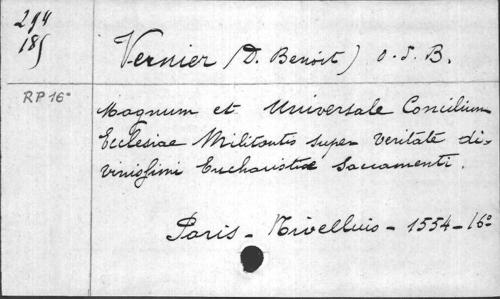 294
185
Vernier (D. Benoit) O.S.B.
RP 16°
Magnum et Universale Concilium
Ecclesiae Militantis super veritate di-
vinissimi Eucharistiæ Sacramenti.
Paris - Nivellius - 1554 - 16°